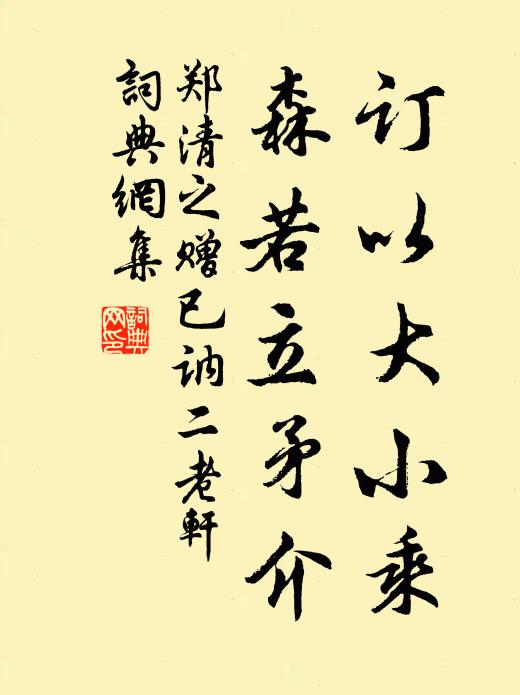 订以大小乘
森若立矛介
郑清之赠已讷二老轩
词典網集
詞典网印